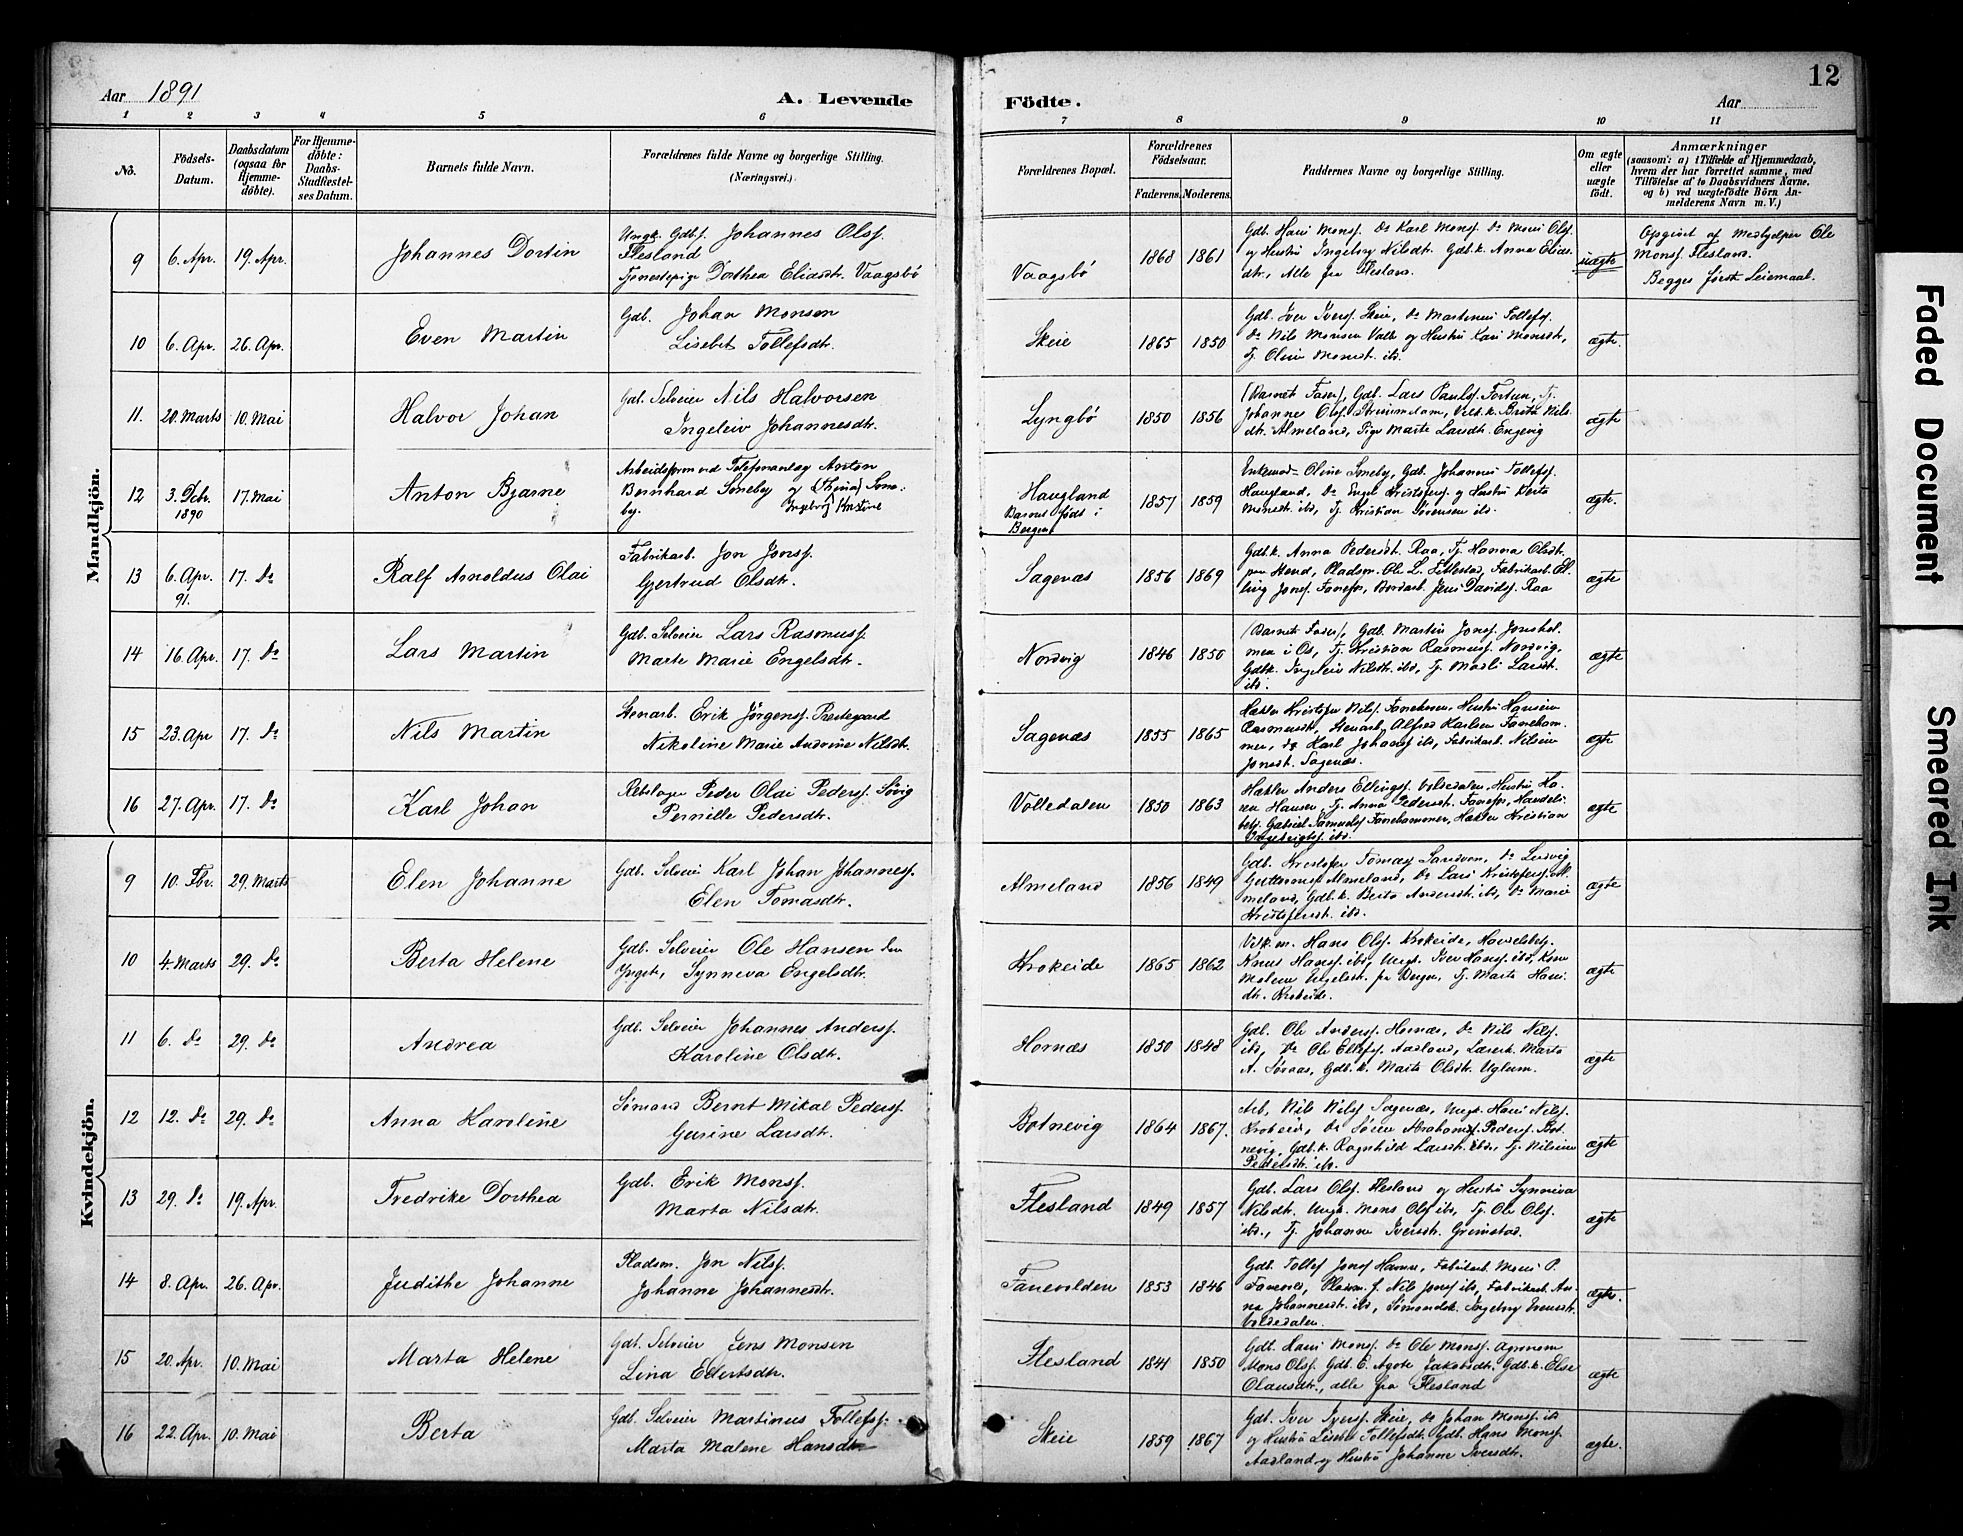 Aar 1891
A. Levende
Födte.
Aar
12
1 2 3 4 5 6 7 8 9 10 11
No.
Födsels-Datum.
Daabsdatum (ogsaa for Hjemme-döbte).
For Hjemme-döbte: Daabs-Stadfæstel-ses Datum.
Barnets fulde Navn.
Forældrenes fulde Navne og borgerlige Stilling. (Næringsvei.)
Forældrenes Bopæl.
Forældrenes Födselsaar.
Faderens. Moderens.
Faddernes Navne og borgerlige Stilling.
Om ægte eller uægte födt.
Anmærkninger
(saasom: a) i Tilfælde af Hjemmedaab,
hvem der har forrettet samme, med
Tilföielse af to Daabsvidners Navne,
og b) ved uægtefödte Börn An-
melderens Navn m. V.)
Mandkjön.
9 6. Apr. 19. Apr. Johannes Dortin
Ungk. Gdbs. Johannes Olsf.
Flesland
Tjenestepige Dorthea Eliasdtr. Vaagsbö
Vaagsbö 1868 1861
Gdb. Hans Monsf. Do Karl Monsf. Do Mons Olsf.
og Hustru Ingeborg Nilsdtr. Gdb.k. Anna Elias-
dtr., Alle fra Flesland.
uægte
Opgivet af Medhjelper Ole
Monsf. Flesland.
Begges förste Leiermaal.
10 6. Apr. 26. Apr. Even Martin
Gdb. Johan Monsen
Lisebet Tollefsdtr.
Skeie 1865 1850
Gdb. Iver Iversf. Skeie, Do Martinus Tollefsf.
Do Nils Monsen Valle og Hustru Kari Monsdtr.,
Tj. Oline Monsdtr. ibd.
ægte.
11. 20. Marts 10. Mai Halvor Johan
Gdb. Selveier Nils Halvorsen
Ingeleiv Johannesdtr.
Lyngbö 1850 1856
(Barnets Fader), Gdb. Lars Paulsf. Fortun, Tj.
Johannes Olsf. Straumdam, Velb.k. Brita Nils-
dtr. Almeland, Pige Marte Larsdtr. Engevig
ægte
12 3. Octr. 1890 17. Mai Anton Bjarne
Arbeidsform. ved Telefonanlæg Anton
Bernhard Smeby og (Hustru) Sme-
by. Ingeborg Kristine
Haugland
Barnet födt i
Bergen
1857 1859
Enkemad. Oline Smeby, Gdb. Johannes Tollefsf.
Haugland, Do Engel Kristofersf. og Hustru Berta
Monsdtr. ibd, Tj. Kristian Sörensen ibd.
ægte.
13 6. Apr. 91. 17. Do Ralf Arnoldus Olai
Fabrikarb. Jon Jonsf.
Gjertrud Olsdtr.
Sagenæs 1856 1869
Gdb.k. Anna Pedersdtr. Raa, Tj. Hanna Olsdtr.
paa Stend, Pladsm. Ole L. Titlestad, Fabrikarb. El-
ling Jonsf. Fanefjr, Bordarb. Jens Davidsf. Raa
ægte
14 16. Apr. 17. Do Lars Martin
Gdb. Selveier Lars Rasmusf.
Marte Marie Engelsdtr.
Nordvig 1846 1850
(Barnets Fader), Gdb. Martin Jonsf. Joneshol-
men i Os, Tj. Kristian Rasmusf. Nordvig,
Gdb.k. Ingeleiv Nilsdtr. ibd, Tj. Marli Larsdtr.
ibd.
ægte
15 23. Apr 17. Do Nils Martin
Stenarb. Erik Jörgensf. Prestegaard
Nikoline Marie Andrine Nilsdtr.
Sagenæs 1855 1865
Hækler Kristofer Nilsf. Fanehamr., Hustru Hansine
Rasmusdtr., Stenarb. Alfred Karlsen Faneham-
mer, Do Karl Johansf. ibd, Fabrikarb. Nilsine
Jonsdtr. Sagenæs.
ægte
16 27. Apr. 17. Do Karl Johan
Rebslager Peder Olai Pedersf. Sörvig
Pernille Pedersdtr.
Volledalen 1850 1863
Hækler Anders Ellingsf. Voldedalen, Hustru Ka-
ren Hansen, Tj. Anna Pedersdtr. Fanefjr, Handels-
betj. Gabriel Samuelsf. Fanehammer, Hækler Kristian
ægte
Kvindekjön.
9 10. Fbr. 29. Marts Elen Johanne
Gdb. Selveier Karl Johan Johannesf.
Elen Tomasdtr.
Almeland 1856 1849
Gdb. Kristofer Tomasf. Sandven, Do Ludvig
Guttormsf. Almeland, Do Lars Kristofersf. Al-
meland, Gdb.k. Berta Andersdtr. ibd, Do Marie
Kristofersdtr. ibd.
ægte
10 4. Marts 29. Do Berta Helene
Gdb. Selveier Ole Hansen den
Yngste, Synneva Engelsdtr.
Krokeide 1865 1862
Velk.m. Hans Olsf. Krokeide, Handelsbetj.
Knud Hansf. ibd, Ungk. Iver Hansf. ibd, Kone
Malene Engelsdtr. fra Bergen, Tj. Marta Hans-
dtr. Krokeide.
ægte
11 6. Do 29. Do Andrea
Gdb. Selveier Johannes Andersf.
Karoline Olsdtr.
Hornæs 1850 1848
Gdb. Ole Andersf. Hornæs, Do Nils Nilsf.
ibd, Do Ole Ellefsf. Aadland, Lærerk. Marta
A. Söraas, Gdb.k. Marta Olsdtr. Uglum.
ægte
12 12. Do 29. Do Anna Karoline
Sömand Bernt Mikal Pedersf.
Gurine Larsdtr.
Botnevig 1864 1867.
Arb. Nils Nilsf. Sagenæs, Ungk. Hans Nilsf.
Krokeid, Do Sören Abrahamsf. Pedersf. Bot-
nevig, Gdb.k. Ragnhild Larsdtr. ibd., Tj. Nilsine
Pedersdtr. ibd.
ægte
13 29. Do 19. Apr. Fredrike Dorthea
Gdb. Erik Monsf.
Marta Nilsdtr.
Flesland 1849 1857
Gdb. Lars Olsf. Flesland og Hustru Synneva
Nilsdtr. Ungk. Mons Olsf. ibd, Tj. Ole Olsf.
ibd., Tj. Johanne Iversdtr. Grimstad.
ægte
14 8. Apr. 26. Apr. Judithe Johanne
Pladsm. Jon Nilsf.
Johanne Johannesdtr.
Fanevolden 1853 1846
Gdb. Tollef Jonsf. Hamre, Fabrikarb. Mons P.
Fanevold, Pladsm.s. Nils Jonsf. ibd, Fabrikarb. An-
na Johannesdtr. ibd, Sömandsk. Ingeborg Iversdtr.
Voldedalen.
ægte.
15 20. Apr. 10. Mai Marta Helene
Gdb. Selveier Jens Monsen
Lina Edertsdtr.
Flesland 1841 1850
Gdb. Hans Monsf. Do Ole Monsf. Agronom
Mons Olsf. Gdb. E. Agote Jakobsdtr. Gdb.k. Else
Olausdtr., alle fra Flesland
ægte
16 22. Apr. 10. Mai Berta
Gdb. Selveier Martinus Tollefsf.
Marta Malene Hansdtr.
Skeie 1859 1867
Gdb. Iver Iversf. Skeie, Do Johan Monsf. ibd
og Hustru Lisebet Tollefsdtr. Gdb. Hans Monsf.
Aadland og Hustru Johanne Iversdtr.
ægte.
Faded Document
Smeared Ink